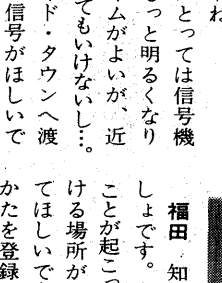 ね
とっては信号機
っと明るくなり
ムがよいが、近
てもいけないし…。
ド・タウンへ渡
信号がほしいで
福田 知
しょです。
ことが起こっ
ける場所が
てほしいで
かたを登録